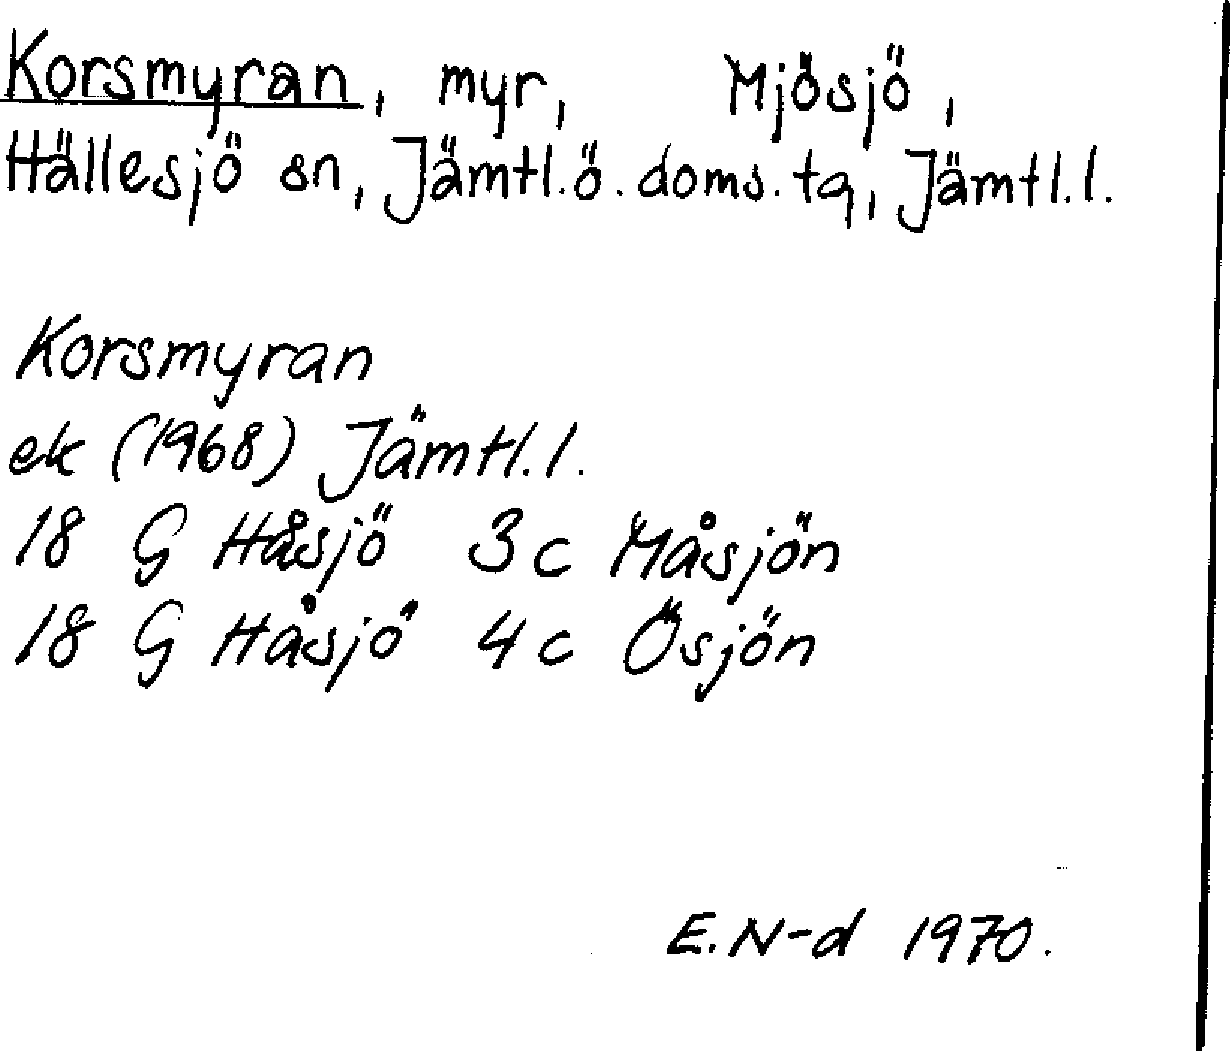 Korsmyran, myr, Mjösjö,
Hällesjö sn, Jämtl.ö.doms.tq, Jämtl.l.
Korsmyran
ek (1968) Jämtl.l.
18 G Håsjö 3c Måsjön
18 G Håsjö 4c Ösjön
E.N-d 1970.